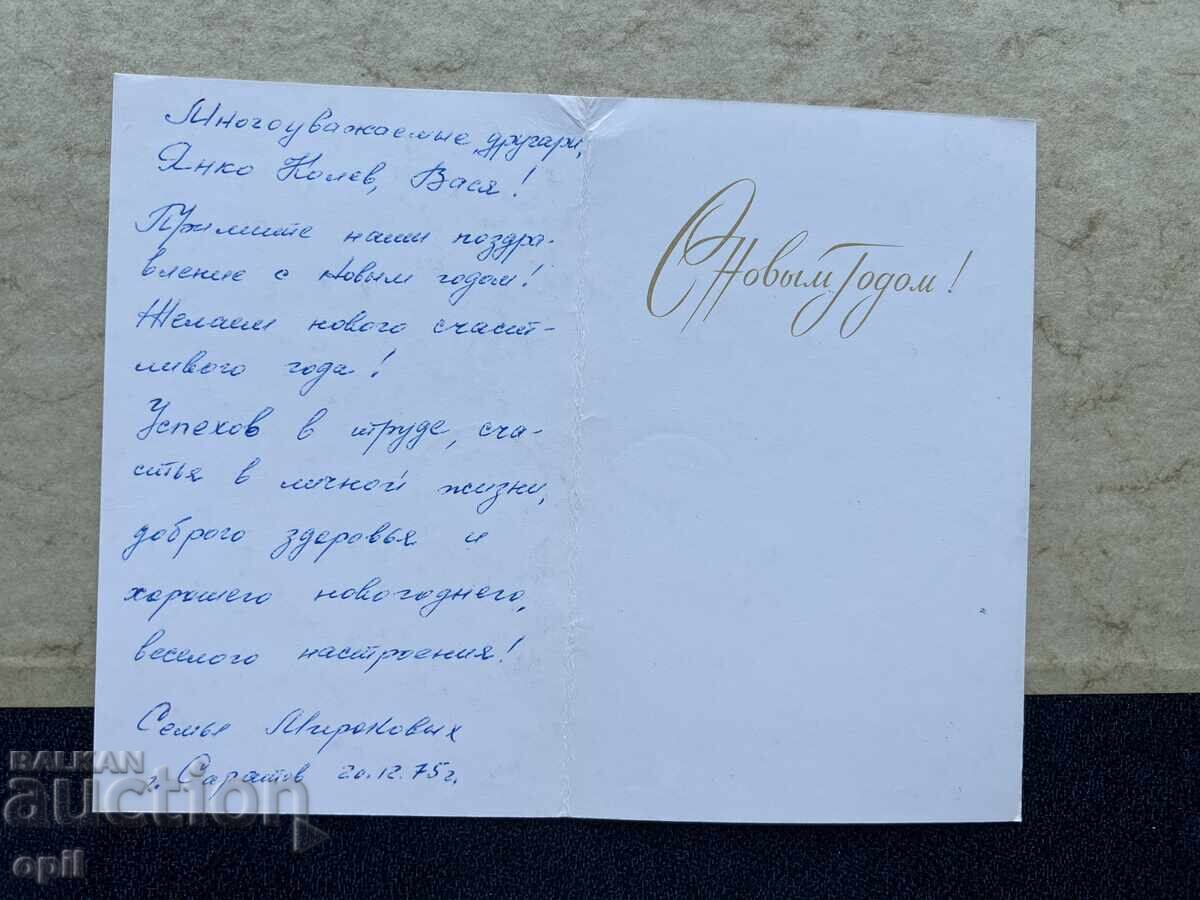 Многоуважаемые другари,
Янко Колев, Вася!
Примите наши поздра-
вление с Новым годом!
Желаем нового счаст-
ливого года!
Успехов в труде, сча-
стья в личной жизни,
доброго здоровья и
хорошего новогоднего,
веселого настроения!
Семья
г. Саратов 20.12.75г.
С Новым Годом!
BALKAN
auction
opil